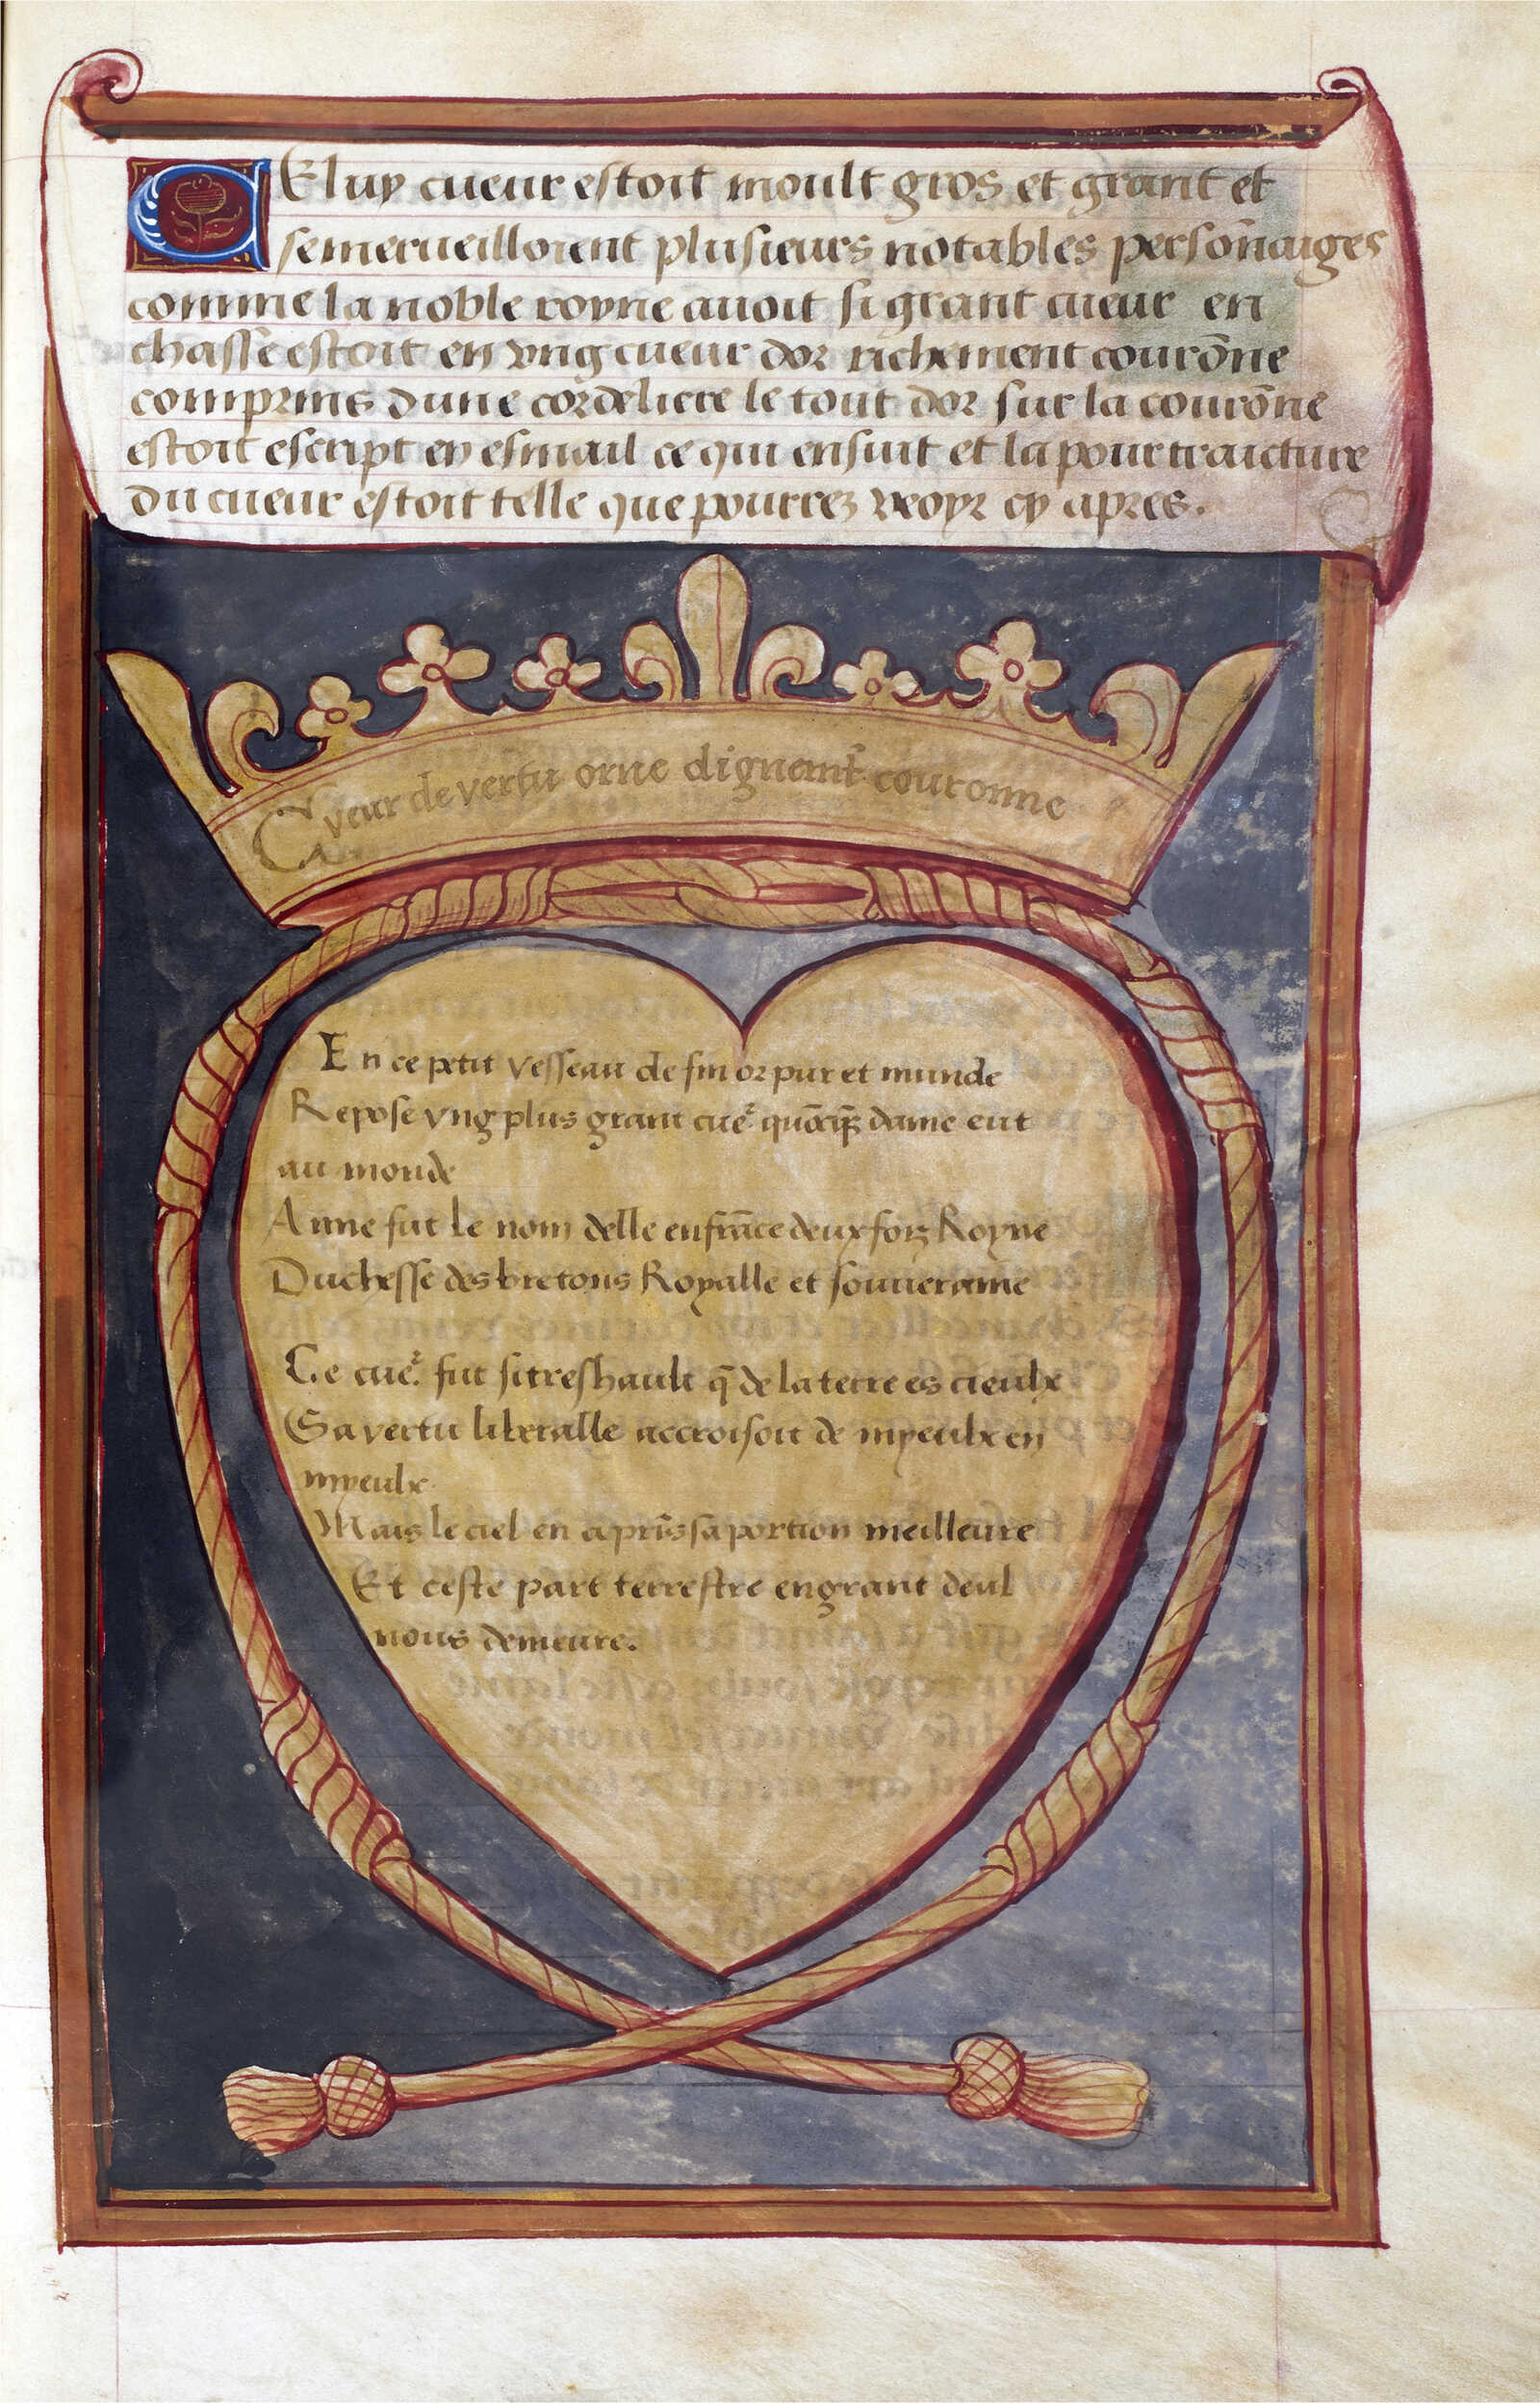 Eluy cueur estoit moult gros et grant et
semerueilloient plusieurs notables persōnaiges
comme la noble royne auoit si grant cueur en
chasse estoit en vng cueur dor richement courōne
comprins dune cordeliere le tout dor sur la courōne
estoit escript en esmail ce qui ensuit et la pourtraicture
du cueur estoit telle que pourrez veoyr cy apres.
Cveur de vertu orne dignemt couronne
En ce petit vesseau de fin or pur et munde
Repose vng plus grant cue² dame eut
au monde
Anne fut le nom delle en frāce deux foiz Royne
Duchesse des bretons Royalle et souueraine
Ce cue² fut si treshault q̄ de la terre es cieulx
Sa vertu liberalle accroisoit de myeulx en
myeulx
Mais le ciel en a prīs sa portion meilleure
Et ceste part terrestre en grant deul
nous demeure.